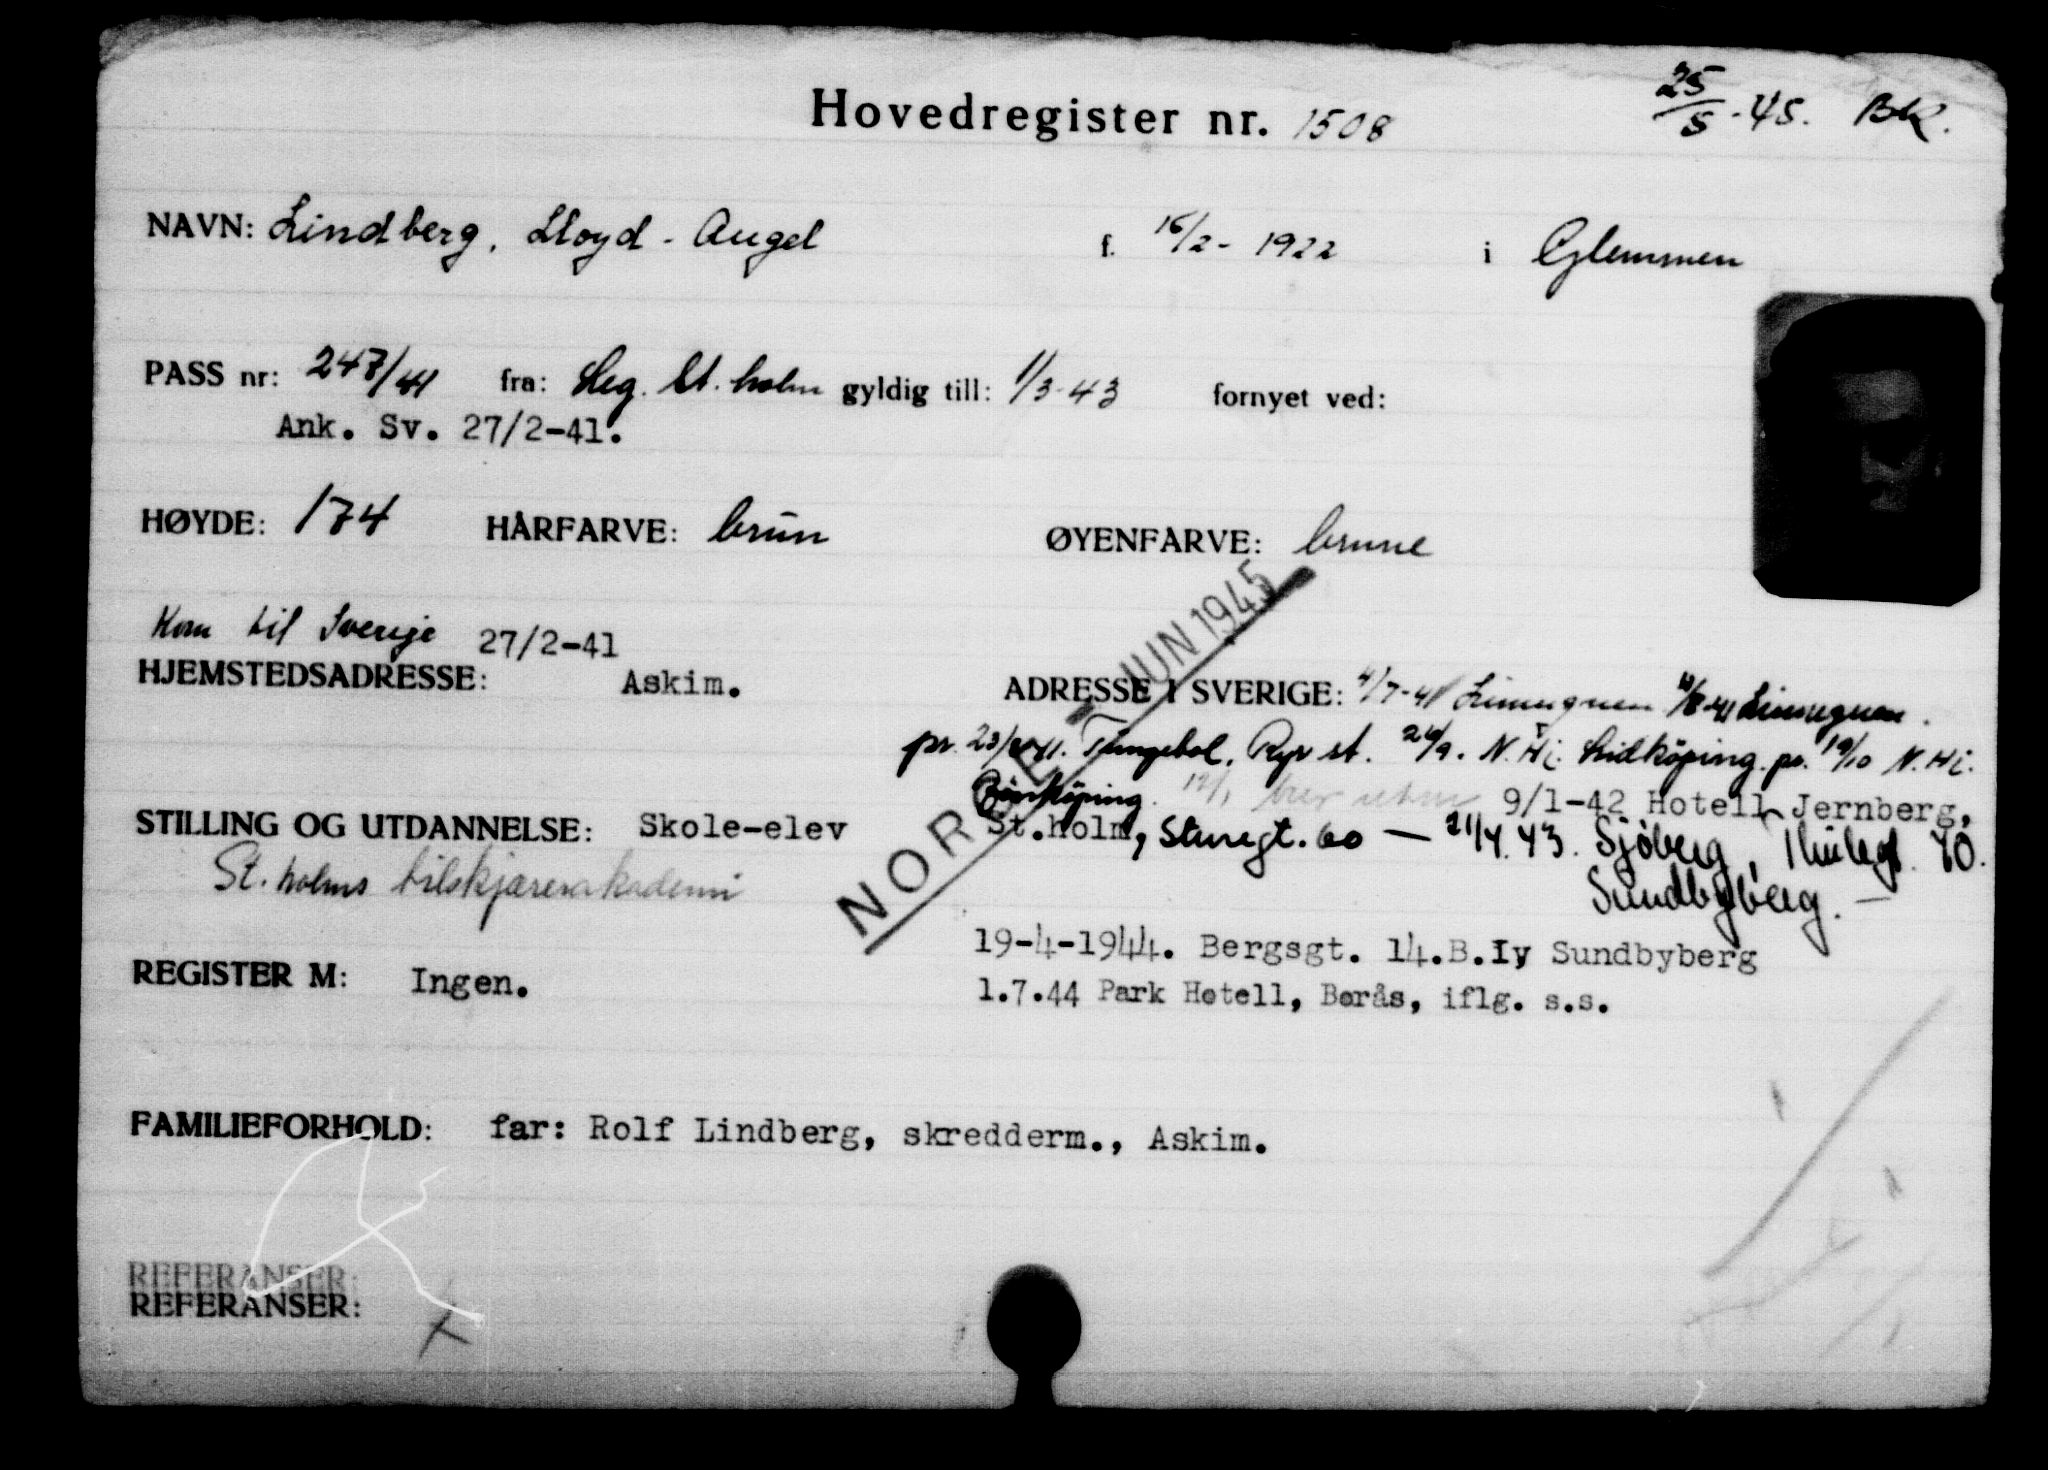 Hovedregister nr. 1508
25/5-45. BK.
NAVN: Lindberg, Lloyd-Angel f. 16/2-1922 i Glemmen
PASS nr: 247/41 fra: Leg. St.holm gyldig till: 1/3-43 fornyet ved:
Ank. Sv. 27/2-41.
HØYDE: 174 HÅRFARVE: brun ØYENFARVE: brune
Kom til Sverige 27/2-41
HJEMSTEDSADRESSE: Askim.
ADRESSE I SVERIGE: 4/7-41 11/8-41
pr. Ryr st. 24/9. N.Hi. Lidköping. pr. 19/10 N.Hi.
Jönköping. 9/1-42 Hotell Jernberg,
St.holm, Sturegt. 60 — 21/4.43. Sjöberg, 70.
Sundbyberg. —
19-4-1944. Bergsgt. 14.B.Iv Sundbyberg
1.7.44 Park Hotell, Borås, iflg. s.s.
NORGE JUN 1945
STILLING OG UTDANNELSE: Skole-elev
St.holms tilskjærerakademi
REGISTER M: Ingen.
FAMILIEFORHOLD: far: Rolf Lindberg, skredderm., Askim.
REFERANSER:
REFERANSER: